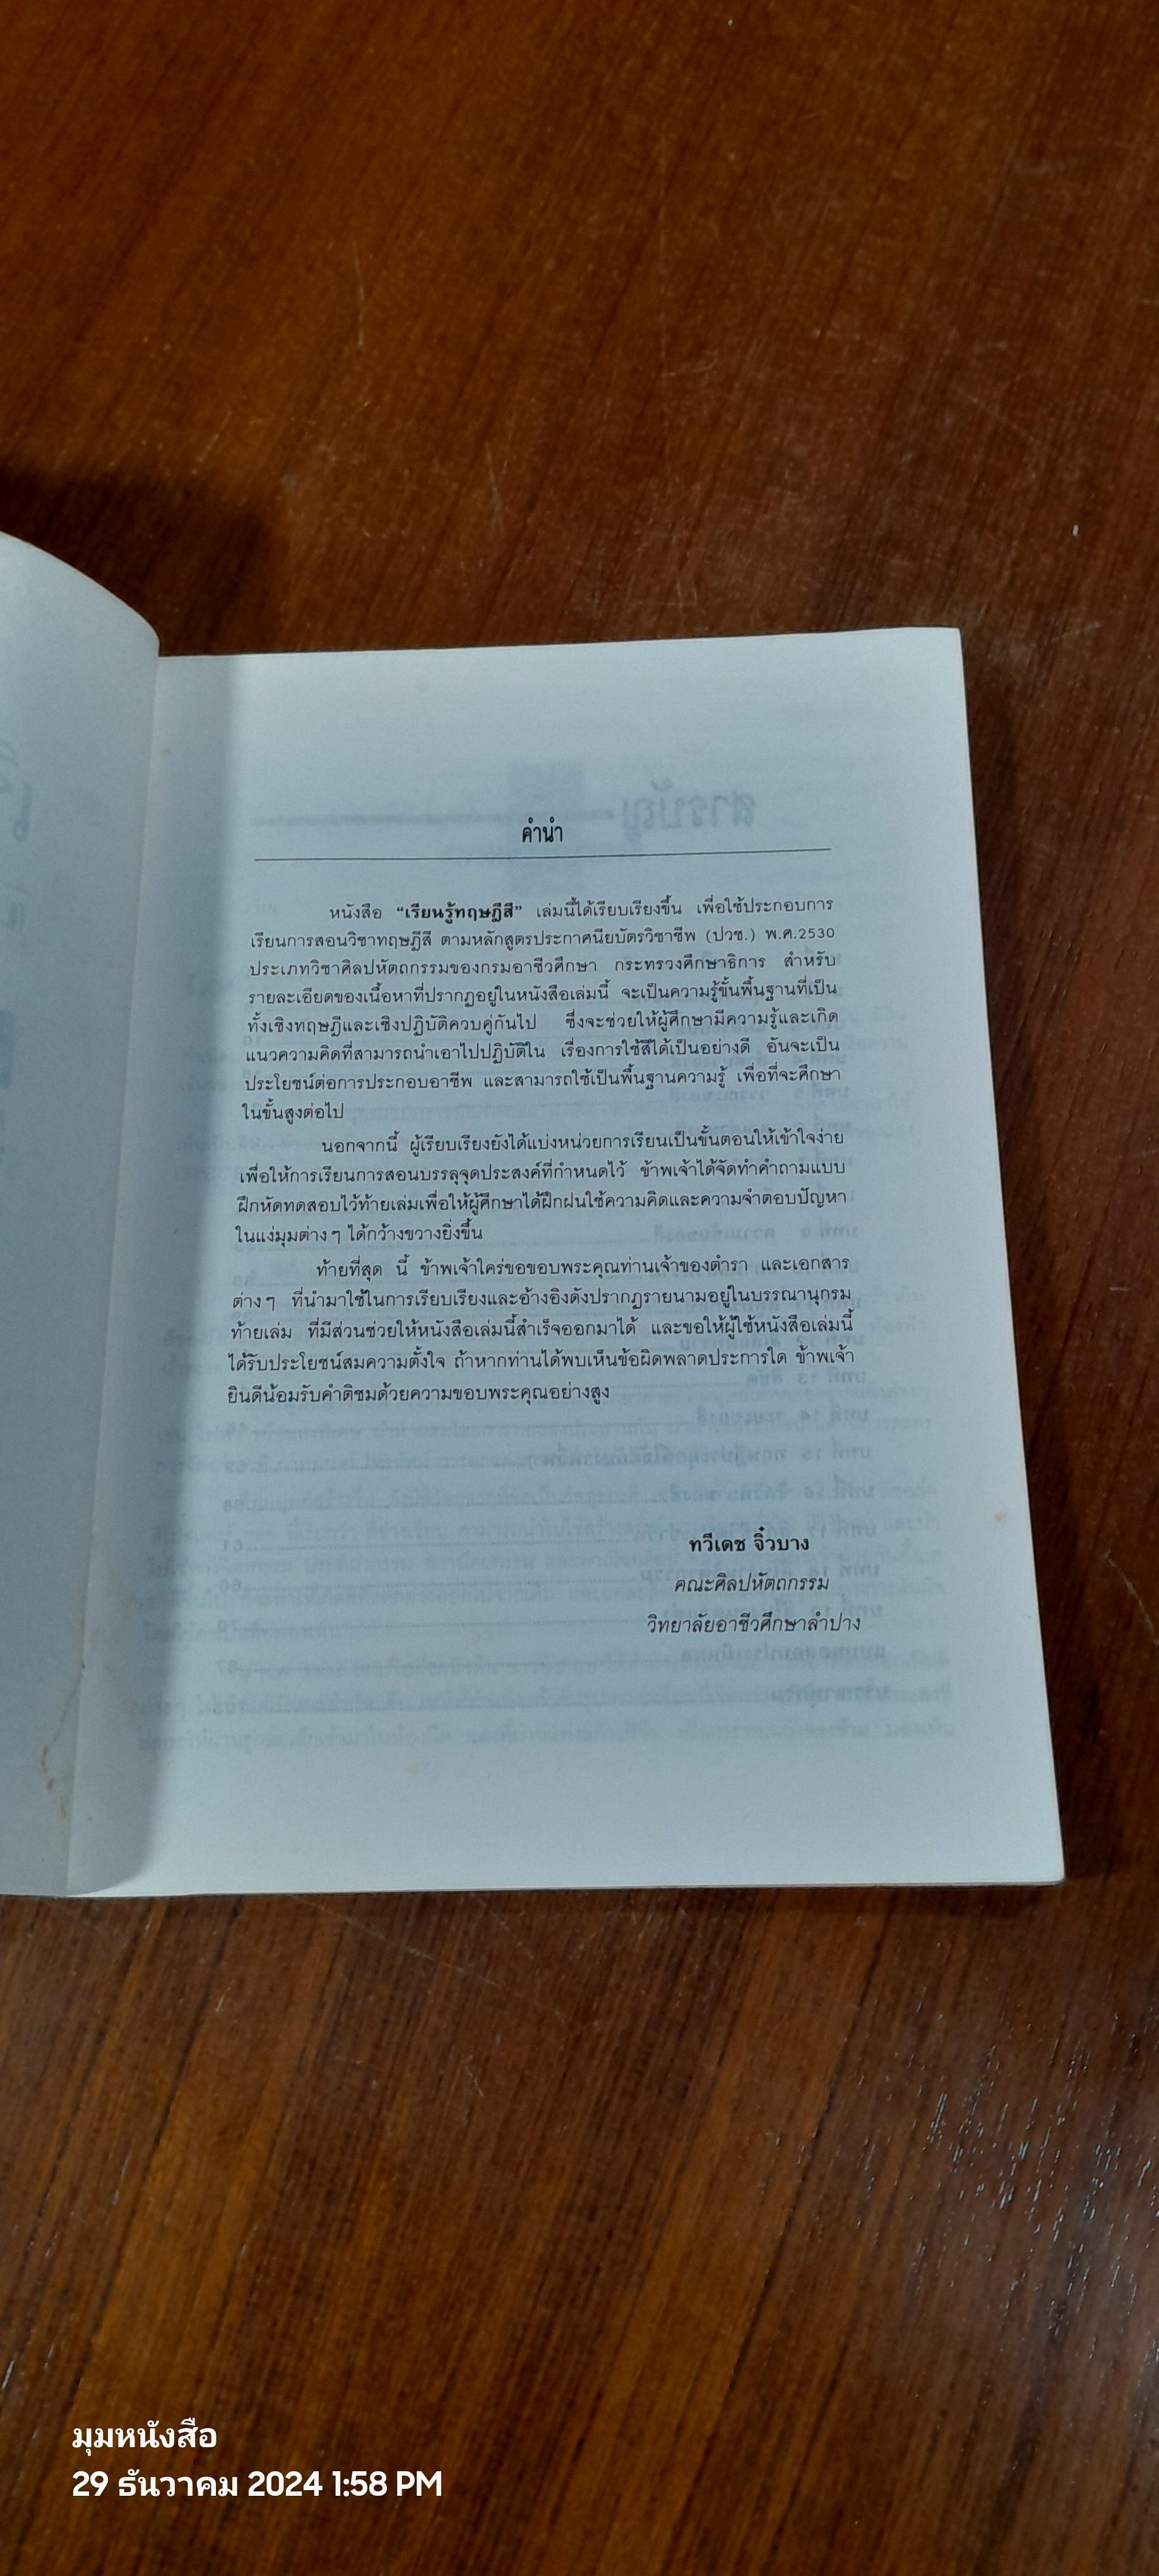 คำนำ
หนังสือ “เรียนรู้ทฤษฎีสี” เล่มนี้ได้เรียบเรียงขึ้น เพื่อใช้ประกอบการ
เรียนการสอนวิชาทฤษฎีสี ตามหลักสูตรประกาศนียบัตรวิชาชีพ (ปวช.) พ.ศ.2530
ประเภทวิชาศิลปหัตถกรรมของกรมอาชีวศึกษา กระทรวงศึกษาธิการ สำหรับ
รายละเอียดของเนื้อหาที่ปรากฏอยู่ในหนังสือเล่มนี้ จะเป็นความรู้ขั้นพื้นฐานที่เป็น
ทั้งเชิงทฤษฎีและเชิงปฏิบัติควบคู่กันไป ซึ่งจะช่วยให้ผู้ศึกษามีความรู้และเกิด
แนวความคิดที่สามารถนำเอาไปปฏิบัติใน เรื่องการใช้สีได้เป็นอย่างดี อันจะเป็น
ประโยชน์ต่อการประกอบอาชีพ และสามารถใช้เป็นพื้นฐานความรู้ เพื่อที่จะศึกษา
ในขั้นสูงต่อไป
นอกจากนี้ ผู้เรียบเรียงยังได้แบ่งหน่วยการเรียนเป็นขั้นตอนให้เข้าใจง่าย
เพื่อให้การเรียนการสอนบรรลุจุดประสงค์ที่กำหนดไว้ ข้าพเจ้าได้จัดทำคำถามแบบ
ฝึกหัดทดสอบไว้ท้ายเล่มเพื่อให้ผู้ศึกษาได้ฝึกฝนใช้ความคิดและความจำตอบปัญหา
ในแง่มุมต่าง ๆ ได้กว้างขวางยิ่งขึ้น
ท้ายที่สุด นี้ ข้าพเจ้าใคร่ขอขอบพระคุณท่านเจ้าของตำรา และเอกสาร
ต่าง ๆ ที่นำมาใช้ในการเรียบเรียงและอ้างอิงดังปรากฏรายนามอยู่ในบรรณานุกรม
ท้ายเล่ม ที่มีส่วนช่วยให้หนังสือเล่มนี้สำเร็จออกมาได้ และขอให้ผู้ใช้หนังสือเล่มนี้
ได้รับประโยชน์สมความตั้งใจ ถ้าหากท่านได้พบเห็นข้อผิดพลาดประการใด ข้าพเจ้า
ยินดีน้อมรับคำติชมด้วยความขอบพระคุณอย่างสูง
ทวีเดช จิ๋วบาง
คณะศิลปหัตถกรรม
วิทยาลัยอาชีวศึกษาลำปาง
มุมหนังสือ
29 ธันวาคม 2024 1:58 PM